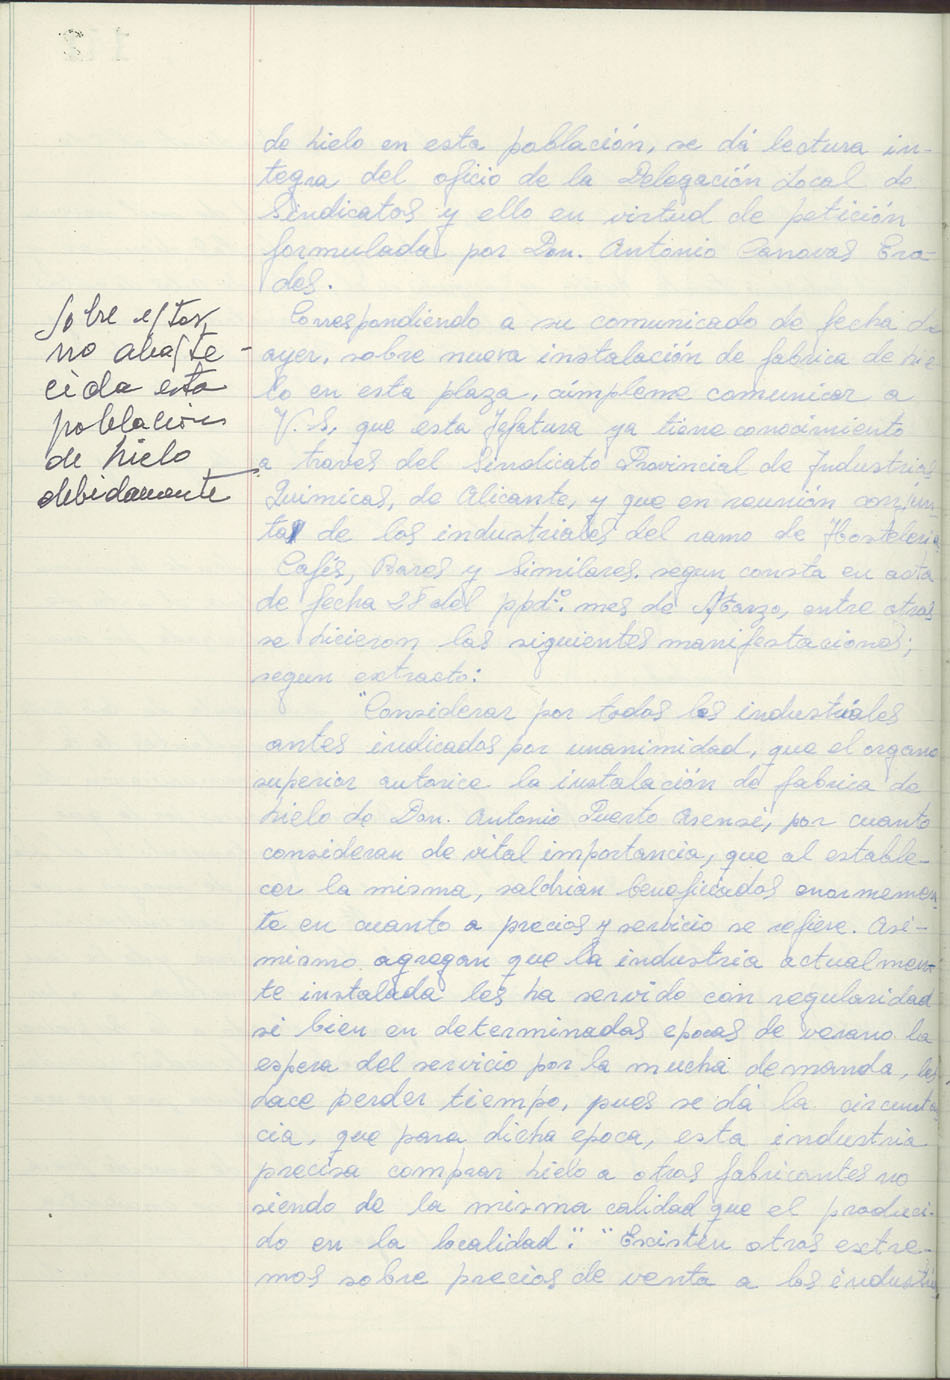 de hielo en esta población, se dá lectura in-
tegra del oficio de la Delegación Local de
Sindicatos y ello en virtud de petición
formulada por Don. Antonio Canovas Era-
des.
Sobre estar
no abaste-
cida esta
población
de hielo
debidamente
Correspondiendo a su comunicado de fecha de
ayer, sobre nueva instalación de fabrica de hie
lo en esta plaza, cúmpleme comunicar a
V.S. que esta Jefatura ya tiene conocimiento
a traves del Sindicato Provincial de Industrias
Quimicas, de Alicante, y que en reunión conjun
ta de los industriales del ramo de Hosteleria
Cafés, Bares y Similares. segun consta en acta
de fecha 28 del ppdº. mes de Marzo, entre otras
se hicieron las siguientes manifestaciones;
segun extracto:
"Considerar por todos los industriales
antes indicados por unanimidad, que el organo
superior autorice la instalación de fabrica de
hielo de Don. Antonio Puerto Asensi, por cuanto
consideran de vital importancia, que al estable-
cer la misma, saldrian beneficiados enormemen
te en cuanto a precios y servicio se refiere. Asi-
mismo agregan que la industria actualmen-
te instalada les ha servido con regularidad
si bien en determinadas epocas de verano la
espera del servicio por la mucha demanda, les
hace perder tiempo, pues se dá la circunstan
cia, que para dicha epoca, esta industria
precisa comprar hielo a otros fabricantes no
siendo de la misma calidad que el produci-
do en la localidad". "Existen otros extre-
mos sobre precios de venta a los industria